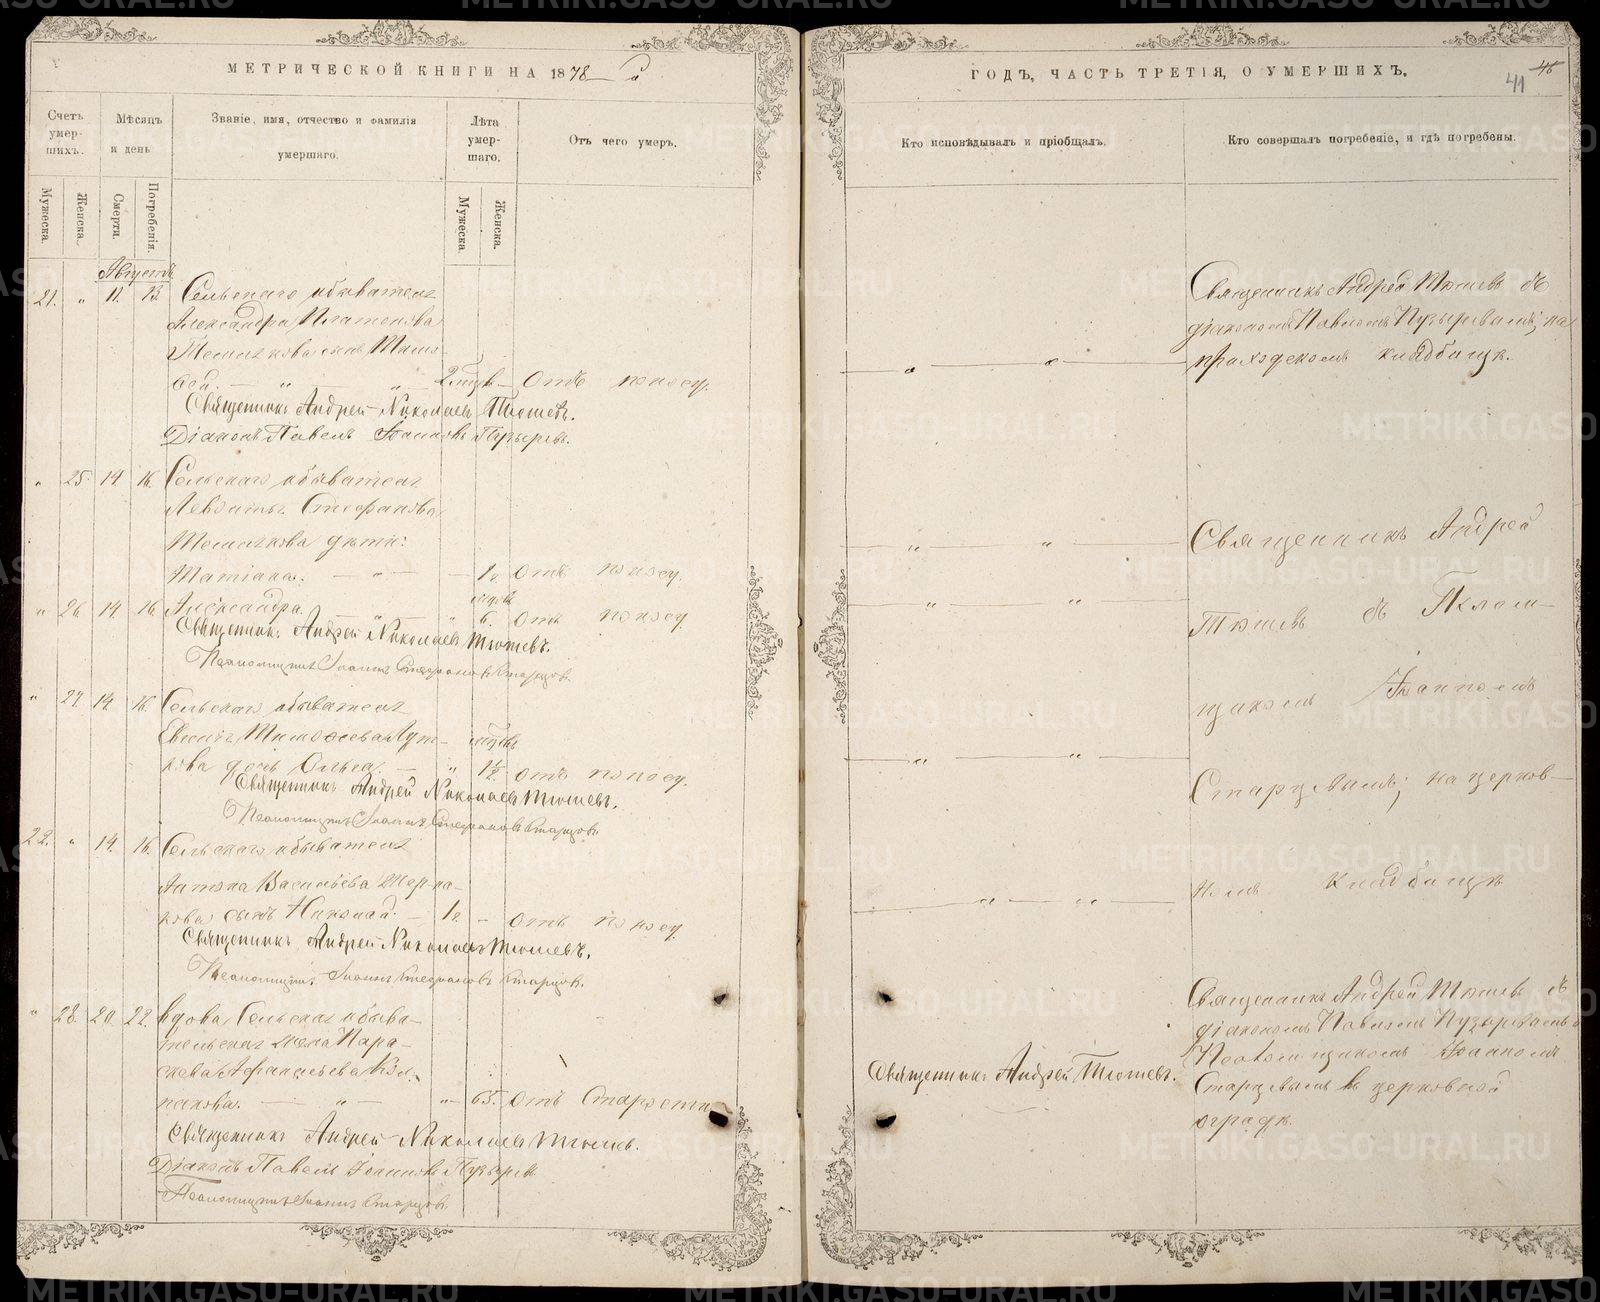 МЕТРИЧЕСКОЙ КНИГИ НА 1878
Счетъ умер-шихъ.
Мѣсяцъ и день
Званіе, имя, отчество и фамилія умершаго.
Лѣта умер-шаго.
Отъ чего умеръ.
Мужеска.
Женска.
Смерти.
Погребенія.
Мужеска.
Женска.
Августъ
21. " 11. 13. Сельскаго обывателя
Александра Платонова
сынъ
" — " — отъ поносу.
Священникъ Андрей Николаевъ Тюшевъ.
Діаконъ Павелъ Іоанновъ Пузыревъ.
" 25. 14 16. Сельскаго обывателя
Стефанова
дѣти:
Татіана. — " — 1 г. отъ поносу.
" 26. 14. 16. Александра. — " — " 6. отъ поносу.
Священникъ Андрей Николаевъ Тюшевъ.
Псаломщикъ Іоаннъ Стефановъ Старцовъ.
" 27. 14. 16. Сельскаго обывателя
Тимофеева
дочь Ольга. — " 1½. отъ поносу.
Священникъ Андрей Николаевъ Тюшевъ.
Псаломщикъ Іоаннъ Стефановъ Старцовъ.
22. " 14. 16. Сельскаго обывателя
Антона Васильева
сынъ Николай. — 1 г. — отъ поносу.
Священникъ Андрей Николаевъ Тюшевъ.
Псаломщикъ Іоаннъ Стефановъ Старцовъ.
" 28. 20. 22. Вдова, Сельская обыва-
тельская жена Пара-
скева Афанасьева Кол-
пакова. — " — " — 65. отъ старости
Священникъ Андрей Николаевъ Тюшевъ.
Діаконъ Павелъ Іоанновъ Пузыревъ
Псаломщикъ Іоаннъ Старцовъ.
ГОДЪ, ЧАСТЬ ТРЕТІЯ, О УМЕРШИХЪ.
46
41
Кто исповѣдывалъ и пріобщалъ.
Кто совершалъ погребеніе, и гдѣ погребены.
Священникъ Андрей Тюшевъ съ
діакономъ Павломъ Пузыревымъ; на
приходскомъ кладбищѣ.
Священникъ Андрей
Тюшевъ съ Псалом-
щикомъ Іоанномъ
Старцевымъ; на церков-
номъ кладбищѣ
Священникъ Андрей Тюшевъ.
Священникъ Андрей Тюшевъ съ
діакономъ Павломъ Пузыревымъ и
Псаломщикомъ Іоанномъ
Старцевымъ въ церковной
оградѣ.
METRIKI.GASO-URAL.RU